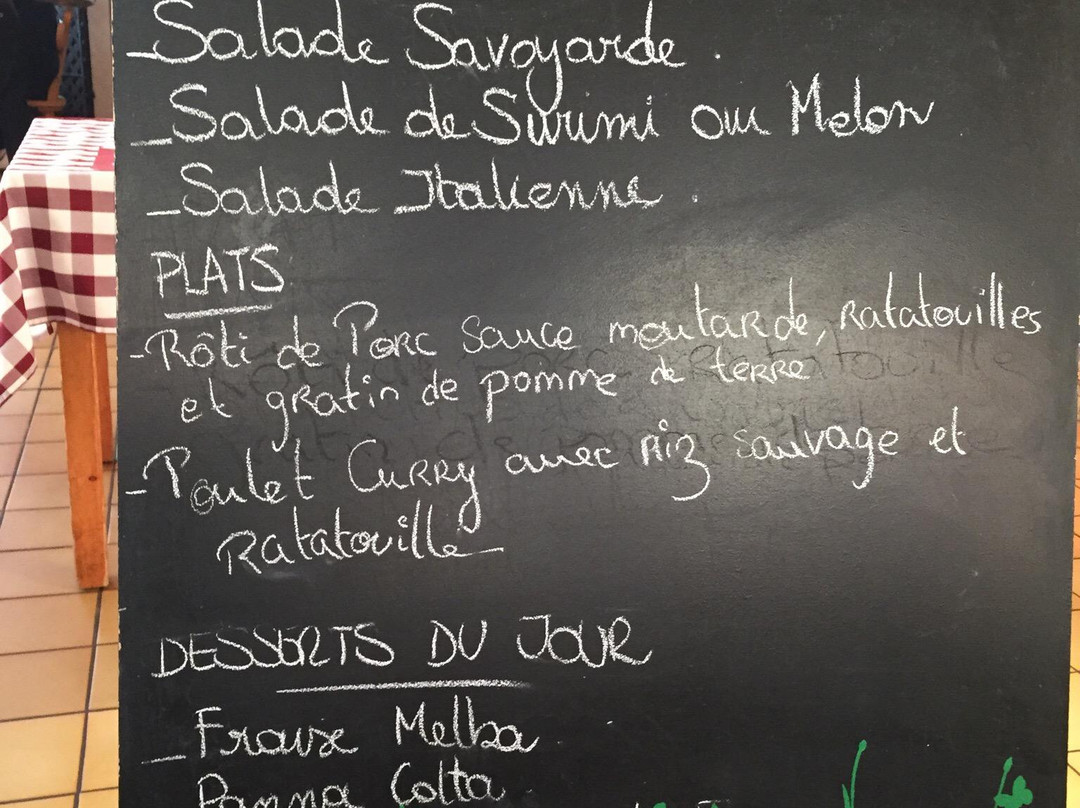 _Salade Savoyarde.
_Salade de Surimi ou Melon
_Salade Italienne.
PLATS
-Rôti de Porc sauce moutarde, Ratatouilles
et gratin de pomme de terre
-Poulet Curry avec Riz sauvage et
Ratatouille
DESSERTS DU JOUR
_Fraise Melba
Panna Cotta